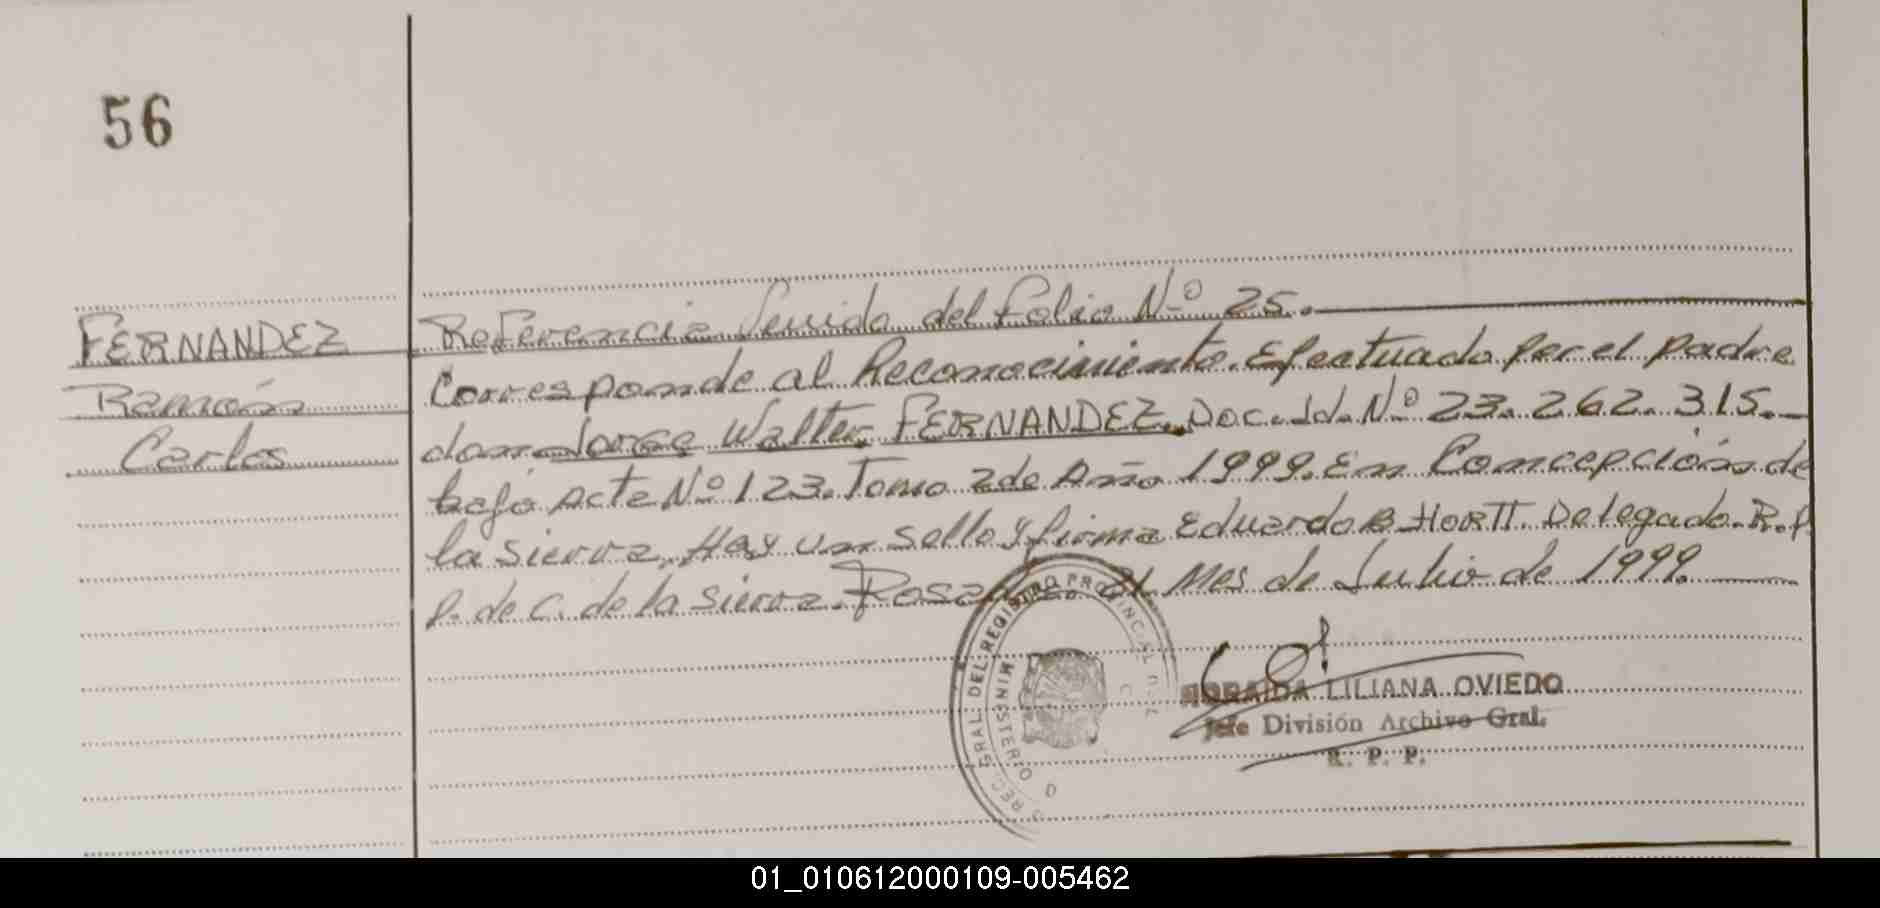 56
FERNANDEZ
Ramón
Carlos
Referencia Venida del folio Nº 25.
Corresponde al Reconocimiento Efectuado por el padre
don Jorge Walter FERNANDEZ Doc. Id. Nº 23.262.315.
bajo Acta Nº 123. Tomo 2 de Año 1999. En Concepción de
la Sierra. Hay un sello y firma Eduardo B HORTT. Delegado R.P.
P. de C. de la Sierra. Posadas 21 Mes de Julio de 1999.
GRAL. DEL REGISTRO PROVINCIAL
MINISTERIO D
LILIANA OVIEDO
Jefe División Archivo Gral.
R. P. P.
01_010612000109-005462